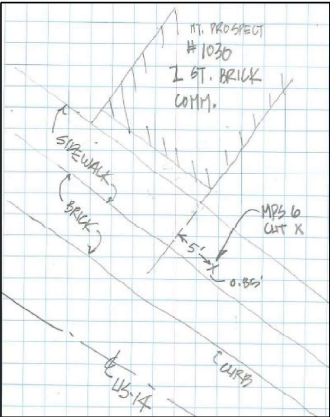 MT. PROSPECT
# 1030
1 ST. BRICK
COMM.
SIDEWALK
BRICK
MPS 6
CUT X
5'
0.85'
CURB
US-14